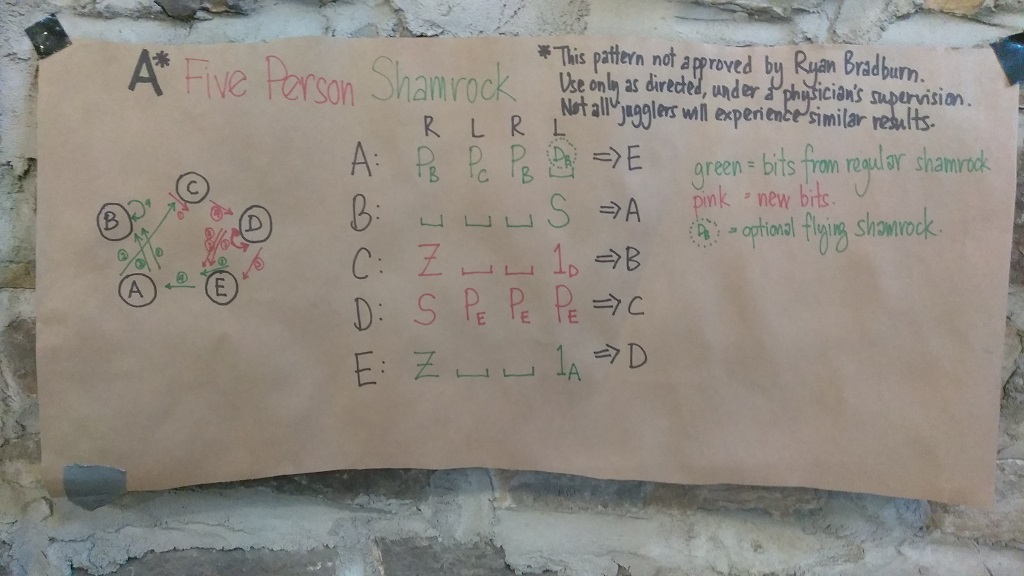 A* Five Person Shamrock
* This pattern not approved by Ryan Bradburn.
Use only as directed, under a physician's supervision.
Not all jugglers will experience similar results.
R L R L
A: P_B P_C P_B P_B ⇒ E
B: ⎵ ⎵ ⎵ S ⇒ A
C: Z ⎵ ⎵ 1_D ⇒ B
D: S P_E P_E P_E ⇒ C
E: Z ⎵ ⎵ 1_A ⇒ D
green = bits from regular shamrock
pink = new bits.
P_B = optional flying shamrock.
C
B D
A E